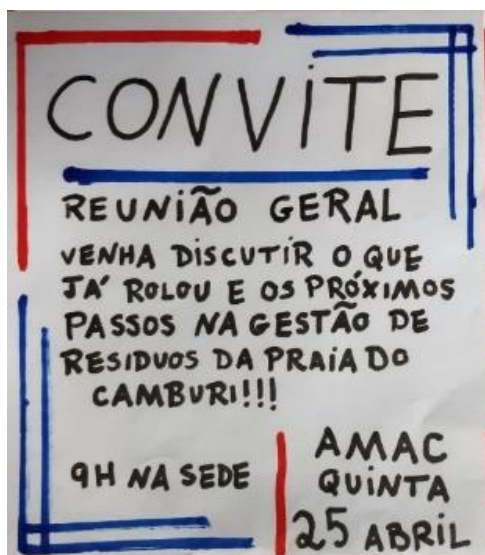 CONVITE
REUNIÃO GERAL
VENHA DISCUTIR O QUE
JÁ ROLOU E OS PRÓXIMOS
PASSOS NA GESTÃO DE
RESIDUOS DA PRAIA DO
CAMBURI!!!
9H NA SEDE
AMAC
QUINTA
25 ABRIL